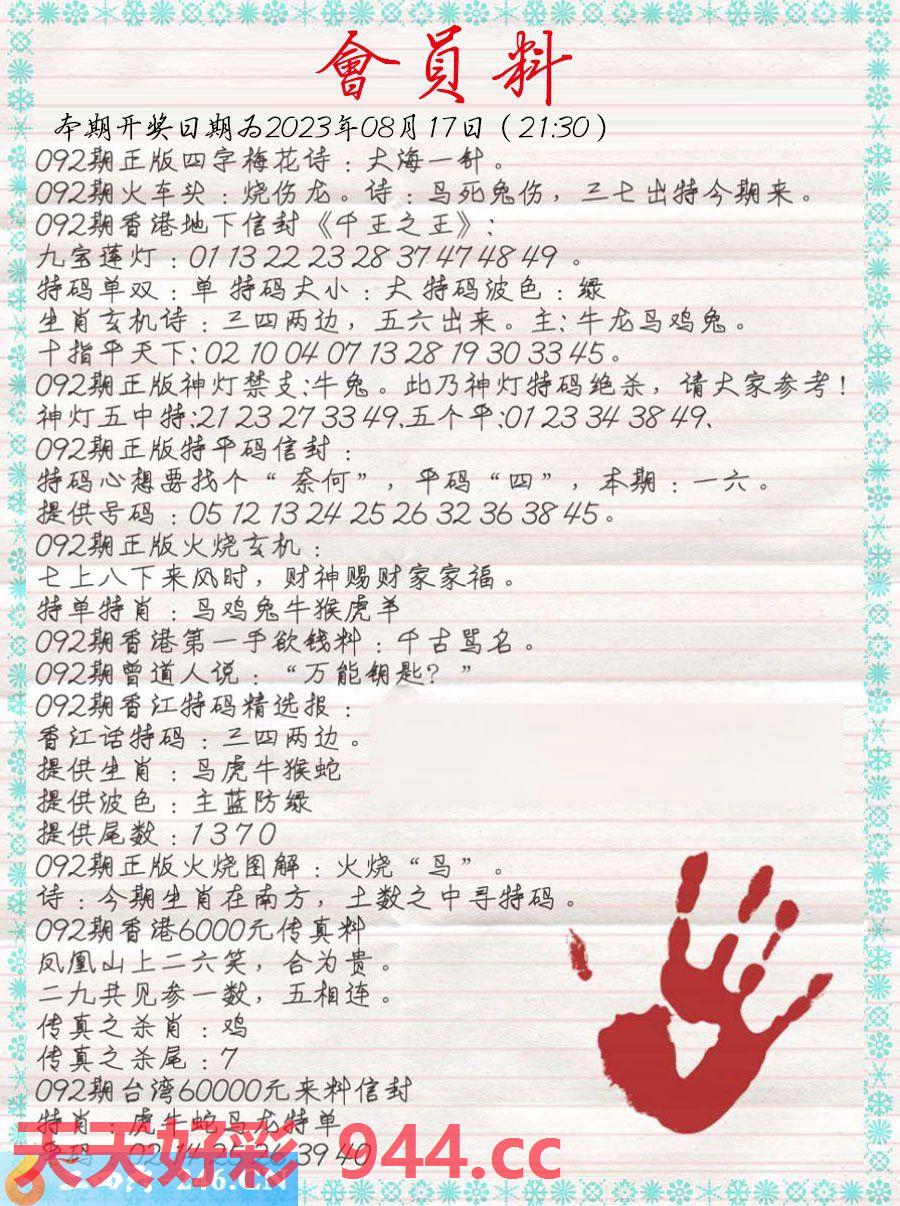 會員料
本期开奖日期为2023年08月17日（21:30）
092期正版四字梅花诗：大海一针。
092期火车头：烧伤龙。诗：鸟死兔伤，三七出特今期来。
092期香港地下信封《千王之王》:
九宝莲灯：01 13 22 23 28 37 47 48 49 。
特码单双：单 特码大小：大 特码波色：绿
生肖玄机诗：三四两边，五六出来。主:牛龙鸟鸡兔。
十指平天下:02 10 04 07 13 28 19 30 33 45。
092期正版神灯禁支:牛兔。此乃神灯特码绝杀，请大家参考!
神灯五中特:21 23 27 33 49.五个平:01 23 34 38 49.
092期正版特平码信封：
特码心想要找个“奈何”，平码“四”，本期：一六。
提供号码：05 12 13 24 25 26 32 36 38 45。
092期正版火烧玄机：
七上八下来风时，财神赐财家家福。
特单特肖：鸟鸡兔牛猴虎羊
092期香港第一手欲钱料：千古骂名。
092期曾道人说：“万能钥匙？”
092期香江特码精选报：
香江话特码：三四两边。
提供生肖：鸟虎牛猴蛇
提供波色：主蓝防绿
提供尾数：1 3 7 0
092期正版火烧图解：火烧“鸟”。
诗：今期生肖在南方，土数之中寻特码。
092期香港6000元传真料
凤凰山上二六笑，合为贵。
二九共见参一数，五相连。
传真之杀肖：鸡
传真之杀尾：7
092期台湾60000元来料信封
特肖：虎牛蛇马龙特单
天天好彩 944.cc
246.CN